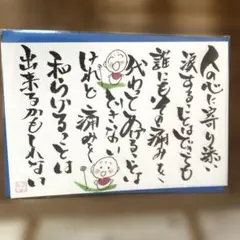 人の心に寄り添い
涙することはできても
誰にもその痛みを
代わってあげることは
できない
けれど 痛みを
和らげることは
出来るかもしれない